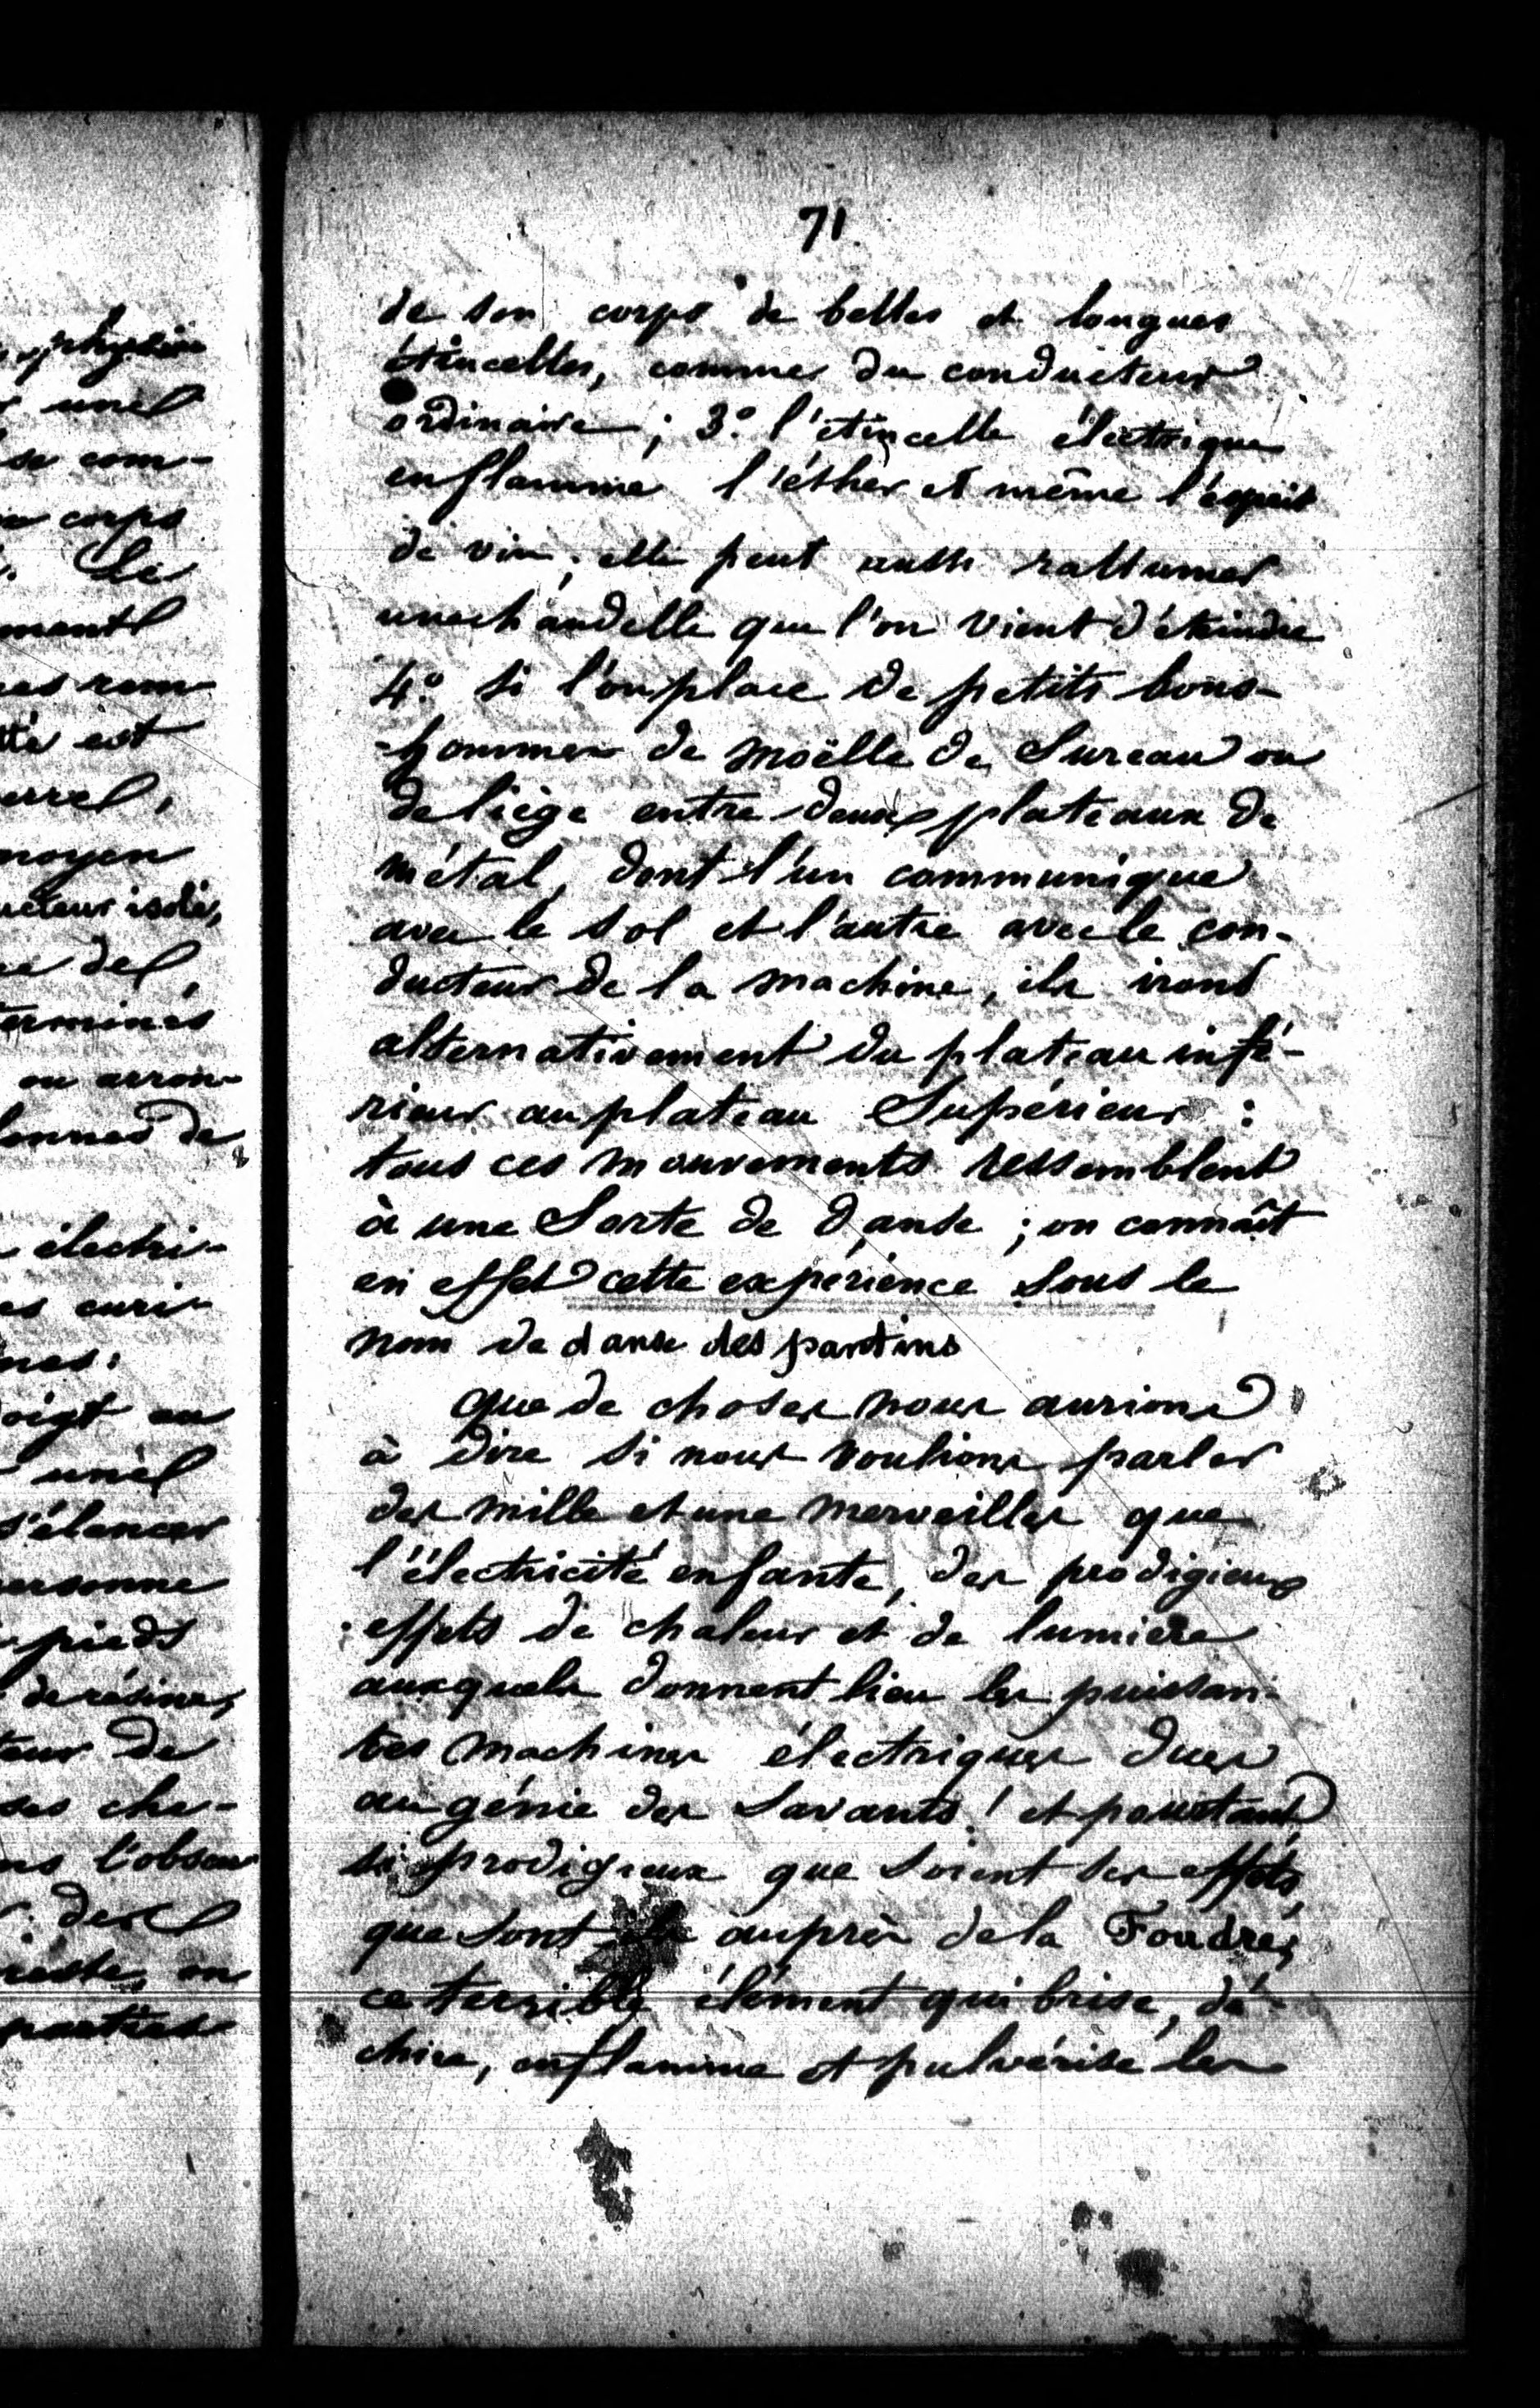 physi
une
se com-
corps
Le
ment
rem-
est
moyen
isolé,
de
terminés
ou arron-
de
électri-
curi-
doigt au
une
s'élancer
personne
pieds
de résine,
de
che-
l'obscu
des
reste, on
parties
71
de son corps de belles et longues
étincelles, comme du conducteur
ordinaire ; 3.° l'étincelle électrique
enflamme l'éther et même l'esprit
de vin ; elle peut aussi rallumer
une chandelle que l'on vient d'éteindre
4.° Si l'on place de petits bons-
-hommes de moëlle de Sureau ou
de liège entre deux plateaux de
métal, dont l'un communique
avec le sol et l'autre avec le con-
ducteur de la machine, ils iront
alternativement du plateau infé-
rieur au plateau Supérieur :
tous ces mouvements ressemblent
à une Sorte de danse ; on connaît
en effet cette expérience Sous le
nom de danse des pantins
que de choses nous aurions
à dire si nous voulions parler
des mille et une merveilles que
l'électricité enfante, des prodigieux
effets de chaleur et de lumière
auxquels donnent lieu les puissan-
tes machines électriques dues
au génie des Savants ! et pourtant
si prodigieux que soient ses effets,
que sont auprès de la Foudre,
ce terrible élément qui brise, dé-
chire, enflamme et pulvérise les